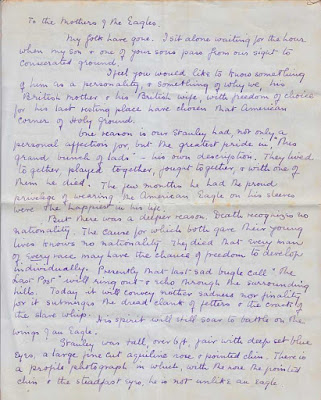 To the Mothers of the Eagles.
My folk have gone. I sit alone waiting for the hour
when my son & one of your sons pass from our sight to
consecrated ground.
I feel you would like to know something
of him as a personality, & something of why we, his
British Mother & his British wife, with freedom of choice
for his last resting place have chosen that American
corner of Holy ground.
One reason is our Stanley had, not only a
personal affection for, but the greatest pride in, "this
grand bunch of lads" - his own description. They lived
together, played together, fought together, & with one of
them he died. The few months he had the proud
privilege of wearing the American Eagle on his sleeves
were the happiest in his life.
But there was a deeper reason. Death recognizes no
nationality. The Cause for which both gave their young
lives knows no nationality. They died that every man
of every race may have the chance of freedom to develop
individually. Presently that last sad bugle call "The
Last Post" will ring out & echo through the surrounding
hills. Today it will convey neither sadness nor finality
for it submerges the dread clank of fetters & the crack of
the slave whip.
His spirit will still soar to battle on the
wings of an Eagle.
Stanley was tall, over 6ft, fair with deep set blue
eyes, a large fine cut aquiline nose & pointed chin. There is
a profile photograph in which, with the nose the pointed
chin & the steadfast eyes, he is not unlike an eagle